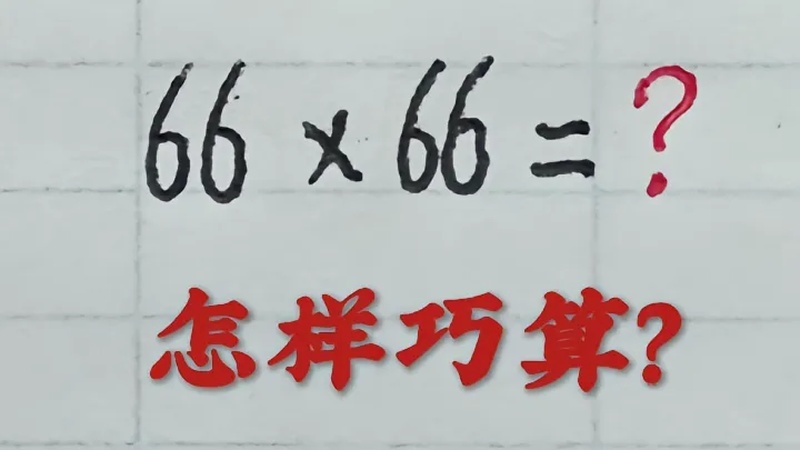 66 × 66 = ?
怎样巧算?